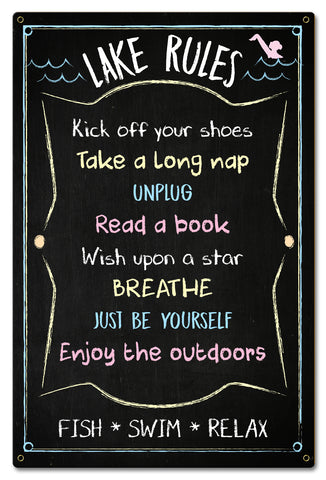 LAKE RULES
Kick off your shoes
Take a long nap
UNPLUG
Read a book
Wish upon a star
BREATHE
JUST BE YOURSELF
Enjoy the outdoors
FISH * SWIM * RELAX